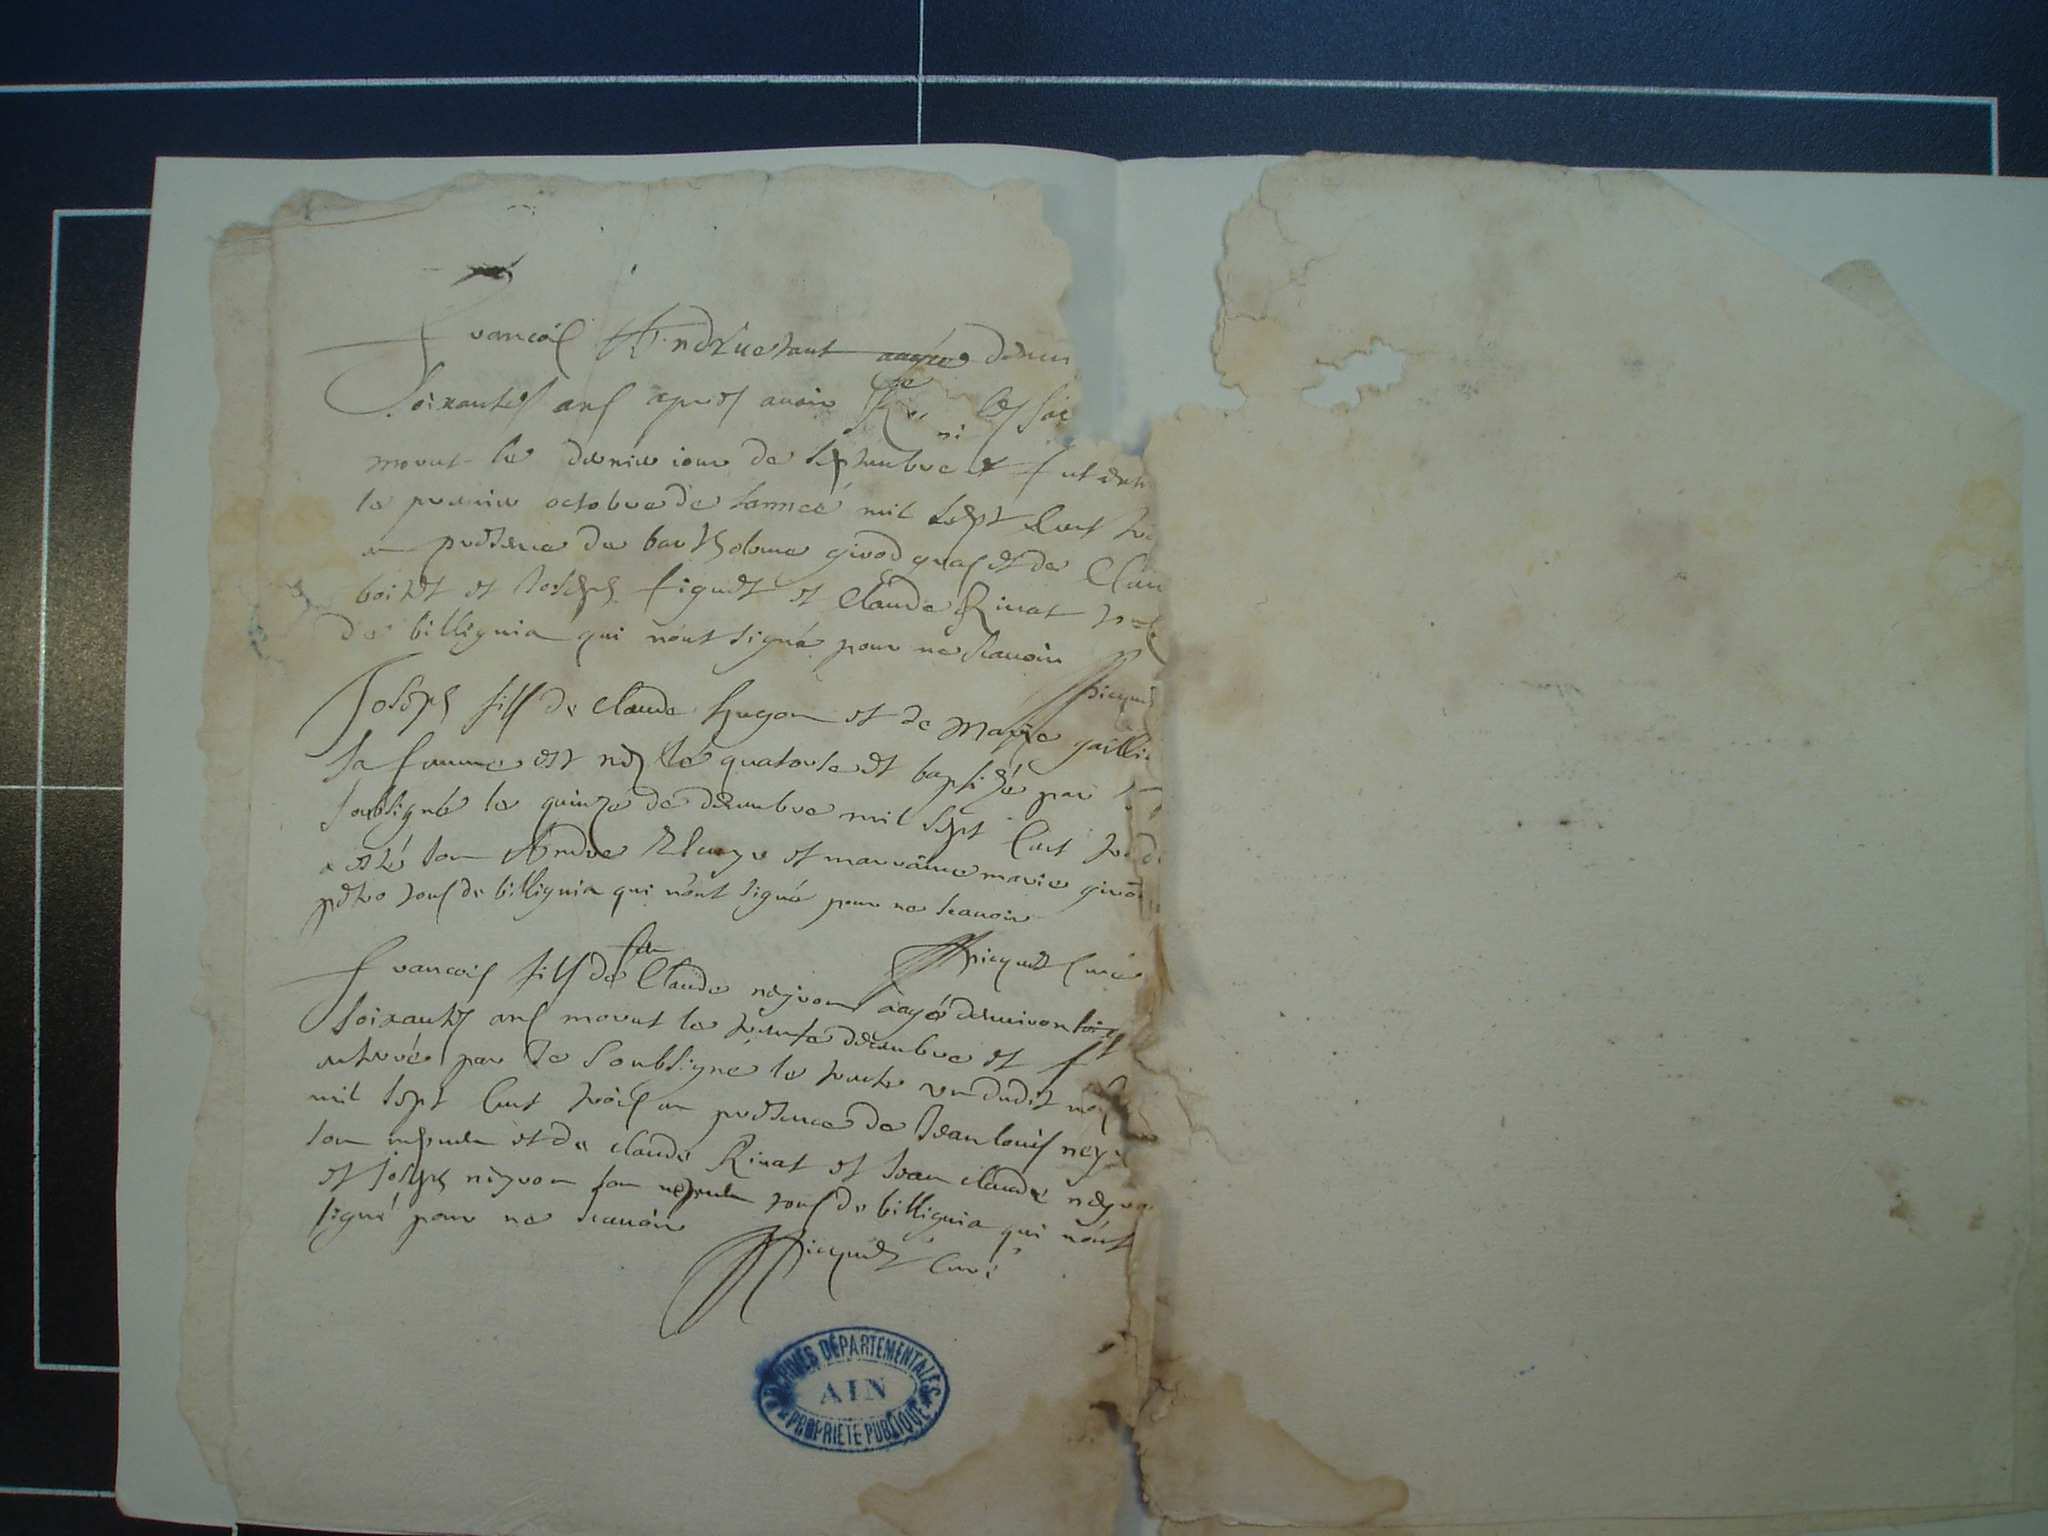 francois Andre estant aagée denui
soixantes ans apres avoir les sai
mourut le dernie iour de septembre et fut ente
le premier octobre de lannee mil sept cent tro
en presence de bartholome girod gras et de Clau
boizet et Joseph figuet et Claude Rivat tous
de billignia qui nont signé pour ne scauoir
picquet
Joseph fils de claude hugon et de Marie gailli
sa femme est nez le quatorse et baptizé par
soubsigné le quinze de decembre mil sept Cent
a esté son Andre et marraine marie girod
tous de billignia qui nont signé pour ne scauoir
picquet Curé
francois fils de feu Claude neyron aagé denuiron
soixantes ans mourut le trente decembre et f
enterré par le soubsigné le trente un dudit mois
mil sept Cent trois en presence de Jean louis ney
son nepueu et de claude Rivat et Jean claude neyro
et Joseph neyron son nepueu tous de billignia qui nont
signé pour ne scauoir
picquet Curé
ARCHIVES DÉPARTEMENTALES
AIN
PROPRIÉTÉ PUBLIQUE